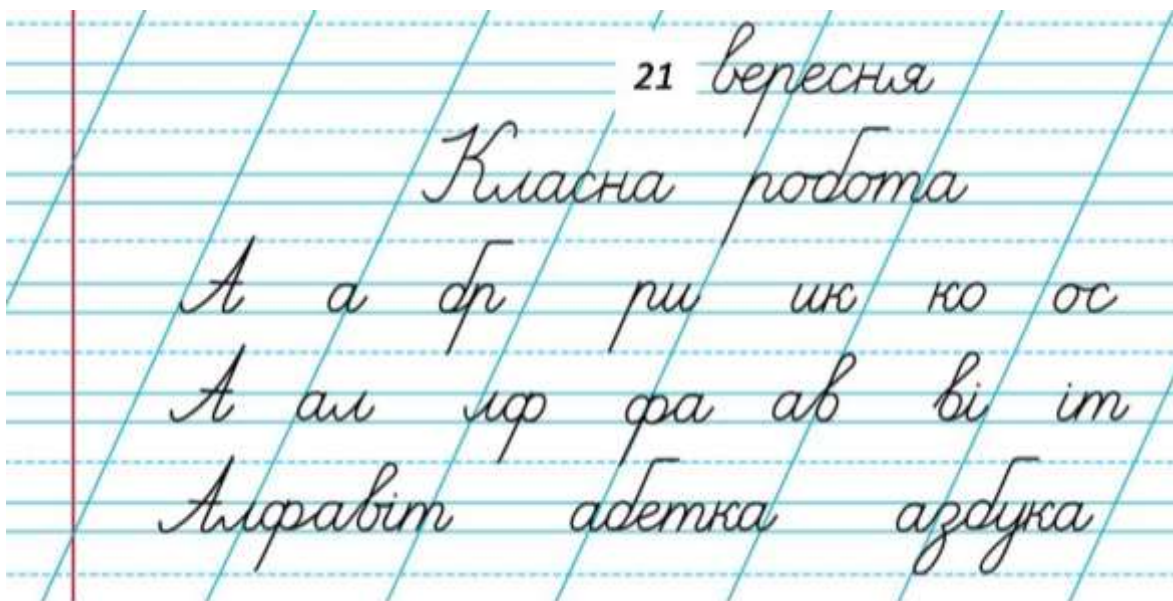 21 вересня
Класна робота
А а бр ри ик ко ос
А ал лф фа ав ві іт
Алфавіт абетка азбука